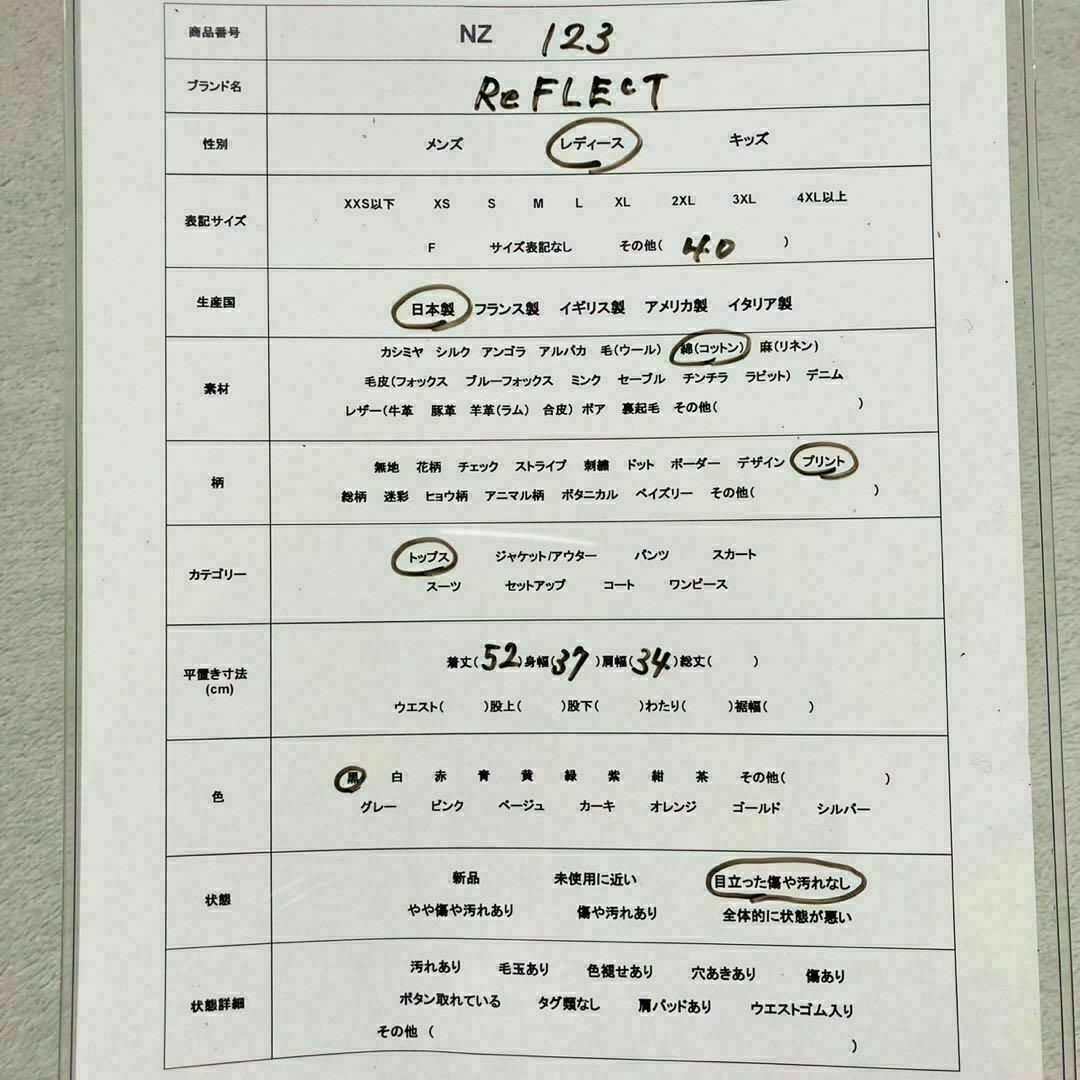 商品番号 NZ 123
ブランド名 ReFLEcT
性別 メンズ レディース キッズ
表記サイズ
XXS以下 XS S M L XL 2XL 3XL 4XL以上
F サイズ表記なし その他( 40 )
生産国 日本製 フランス製 イギリス製 アメリカ製 イタリア製
素材
カシミヤ シルク アンゴラ アルパカ 毛(ウール) 綿(コットン) 麻(リネン)
毛皮(フォックス ブルーフォックス ミンク セーブル チンチラ ラビット) デニム
レザー(牛革 豚革 羊革(ラム) 合皮) ボア 裏起毛 その他( )
柄
無地 花柄 チェック ストライプ 刺繍 ドット ボーダー デザイン プリント
総柄 迷彩 ヒョウ柄 アニマル柄 ボタニカル ペイズリー その他( )
カテゴリー
トップス ジャケット/アウター パンツ スカート
スーツ セットアップ コート ワンピース
平置き寸法
(cm)
着丈(52)身幅(37)肩幅(34)総丈( )
ウエスト( )股上( )股下( )わたり( )裾幅( )
色
黒 白 赤 青 黄 緑 紫 紺 茶 その他( )
グレー ピンク ベージュ カーキ オレンジ ゴールド シルバー
状態
新品 未使用に近い 目立った傷や汚れなし
やや傷や汚れあり 傷や汚れあり 全体的に状態が悪い
状態詳細
汚れあり 毛玉あり 色褪せあり 穴あきあり 傷あり
ボタン取れている タグ類なし 肩パッドあり ウエストゴム入り
その他 ( )